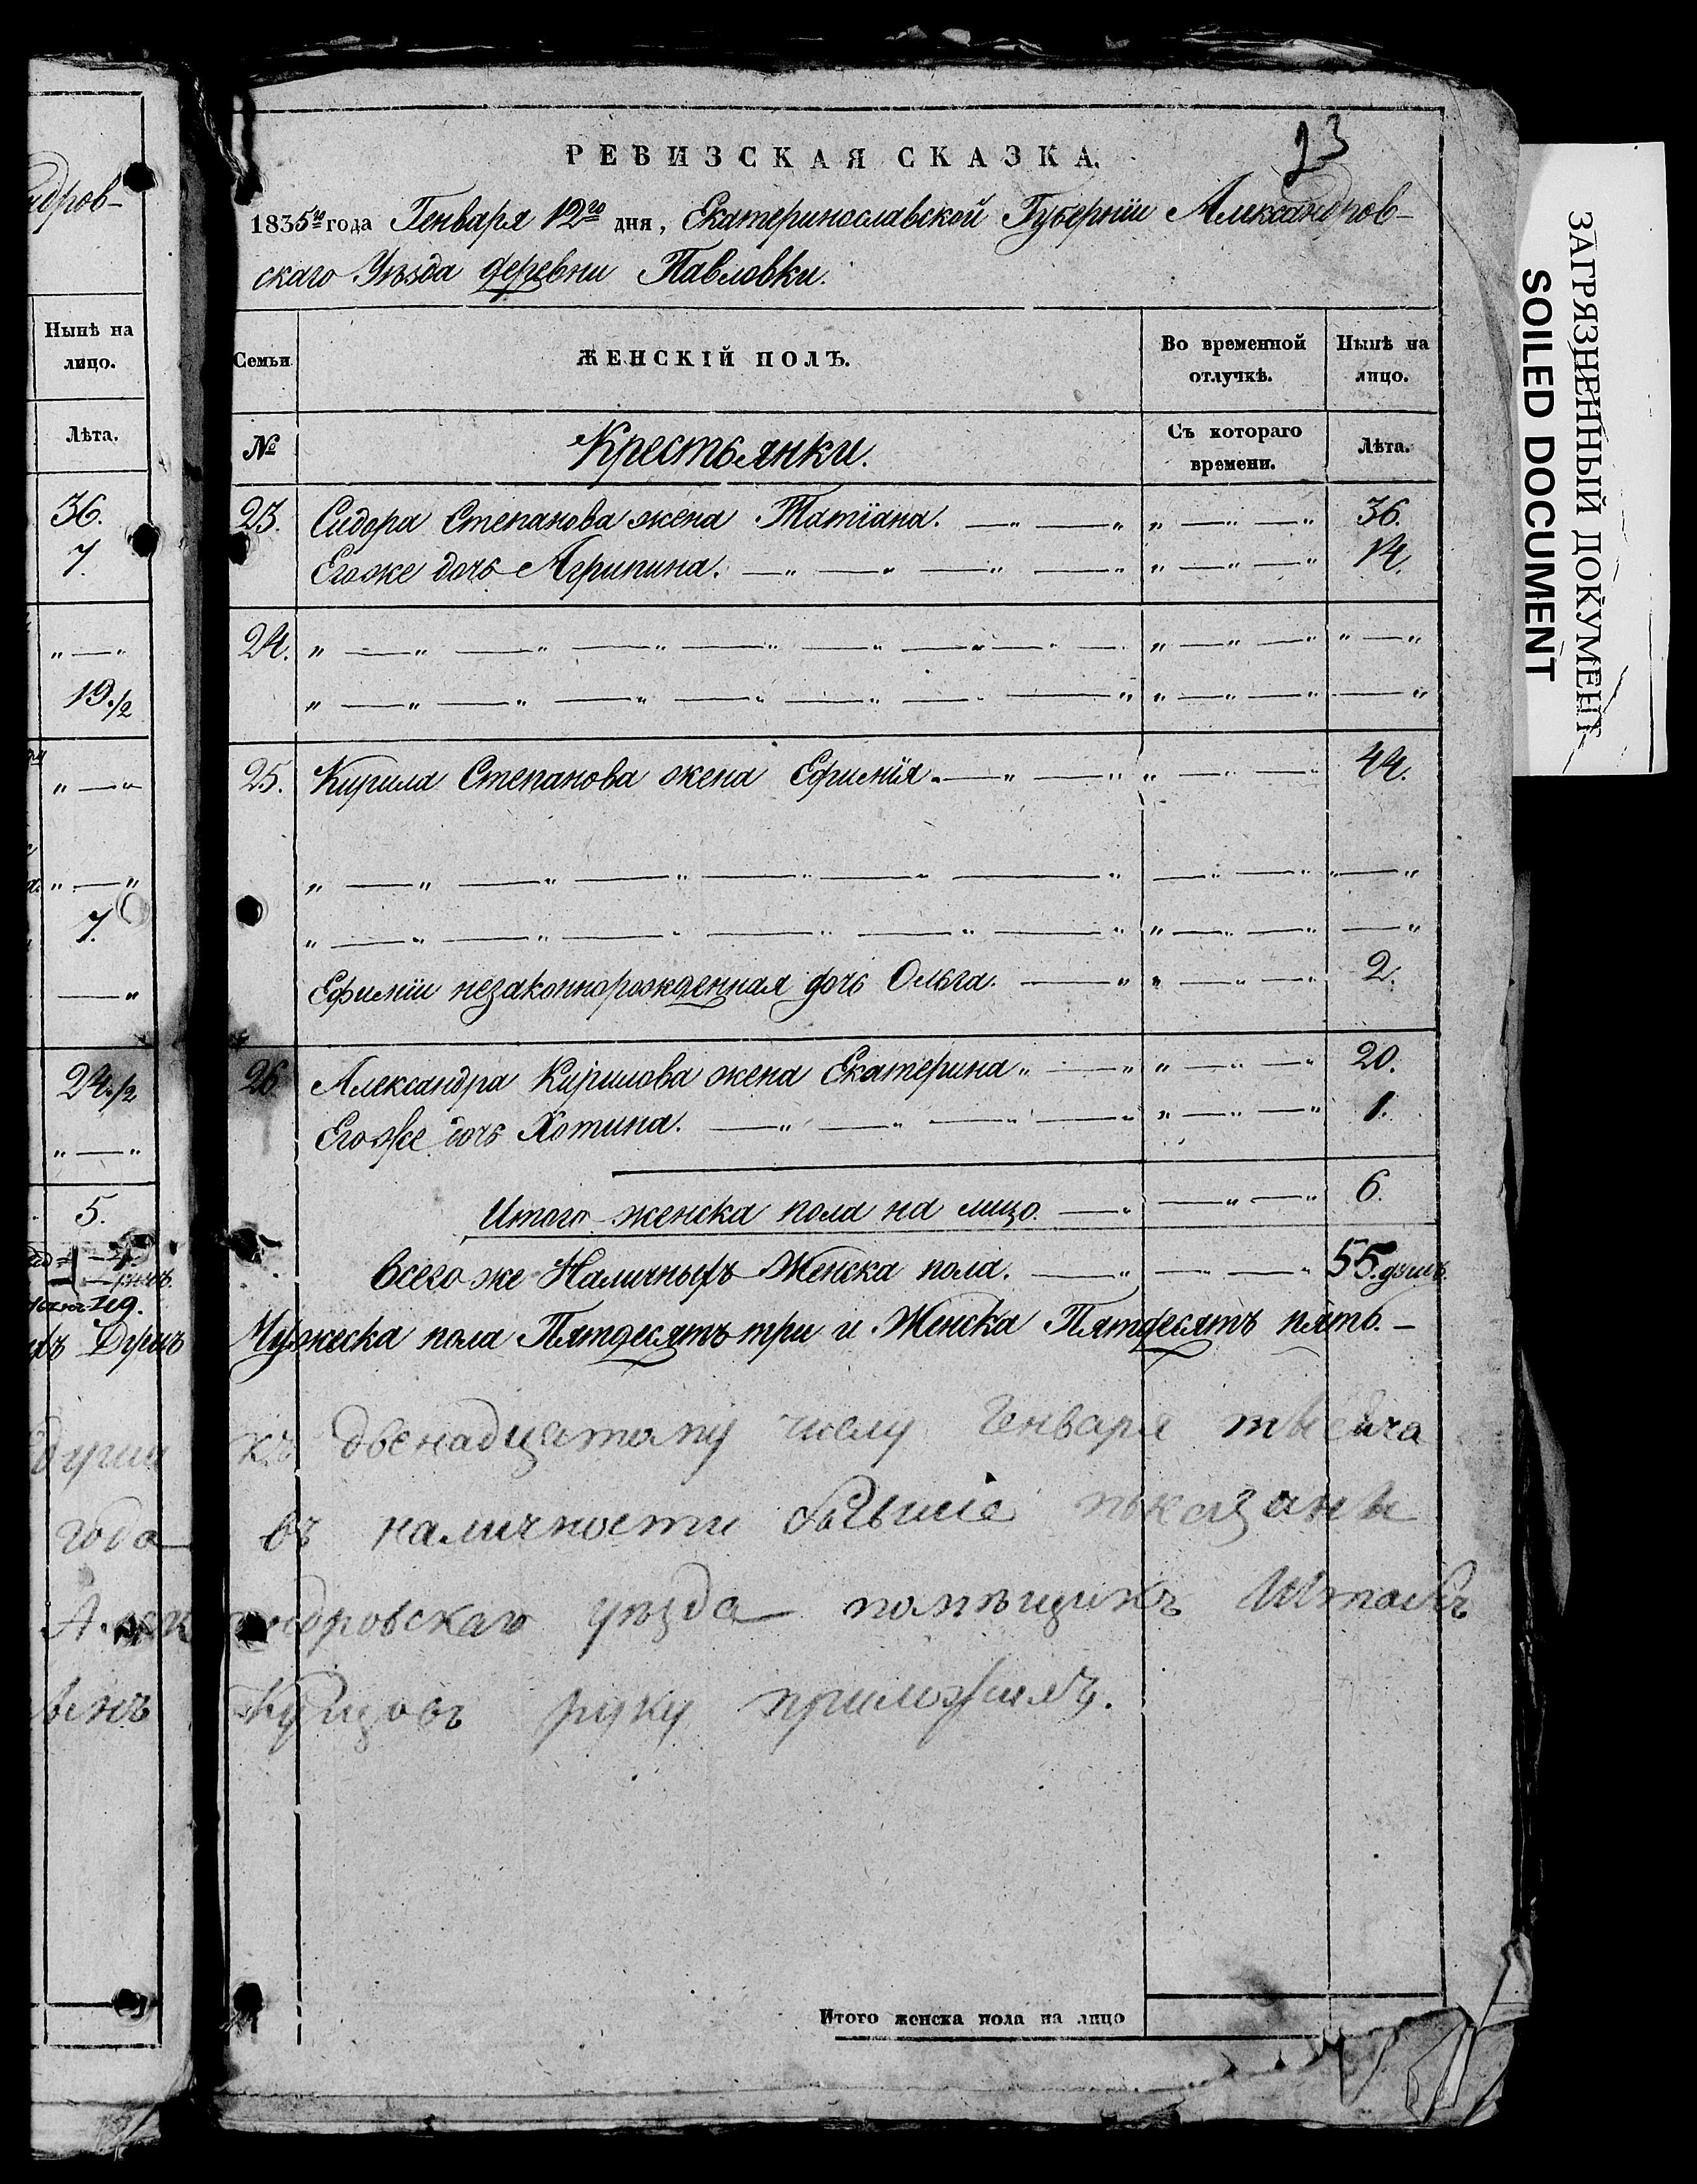 23
РЕВИЗСКАЯ СКАЗКА.
1835го года Генваря 12го дня, Екатеринославской Губерніи Александров-
скаго Уѣзда деревни Павловки.
Семьи ЖЕНСКІЙ ПОЛЪ. Во временной отлучкѣ. Нынѣ на лицо.
№ Крестьянки. Съ котораго времени. Лѣта.
23. Сидора Степанова жена Татіана. 36.
Егоже дочь Агрипина. 14.
24.
25. Кирила Степанова жена Ефимія 44.
Ефиміи незаконнорожденная дочь Ольга. 2.
26 Александра Кирилова жена Екатерина 20.
Егоже дочь Хотина. 1.
Итого женска пола на лицо. 6.
Всего же Наличныхъ Женска пола. 55. душъ.
Мужеска пола Пятдесятъ три и Женска Пятдесятъ пять.
къ двенадцатому числу Генваря тысяча
въ наличности бывшіе показаны
Александровскаго уѣзда помѣщикъ Штабъ
руку приложилъ.
Итого женска пола на лицо
ндров-
Нынѣ на
лицо.
Лѣта.
36.
7.
19.½
7.
24.½
5.
душъ
года
ЗАГРЯЗНЕННЫЙ ДОКУМЕНТ
SOILED DOCUMENT